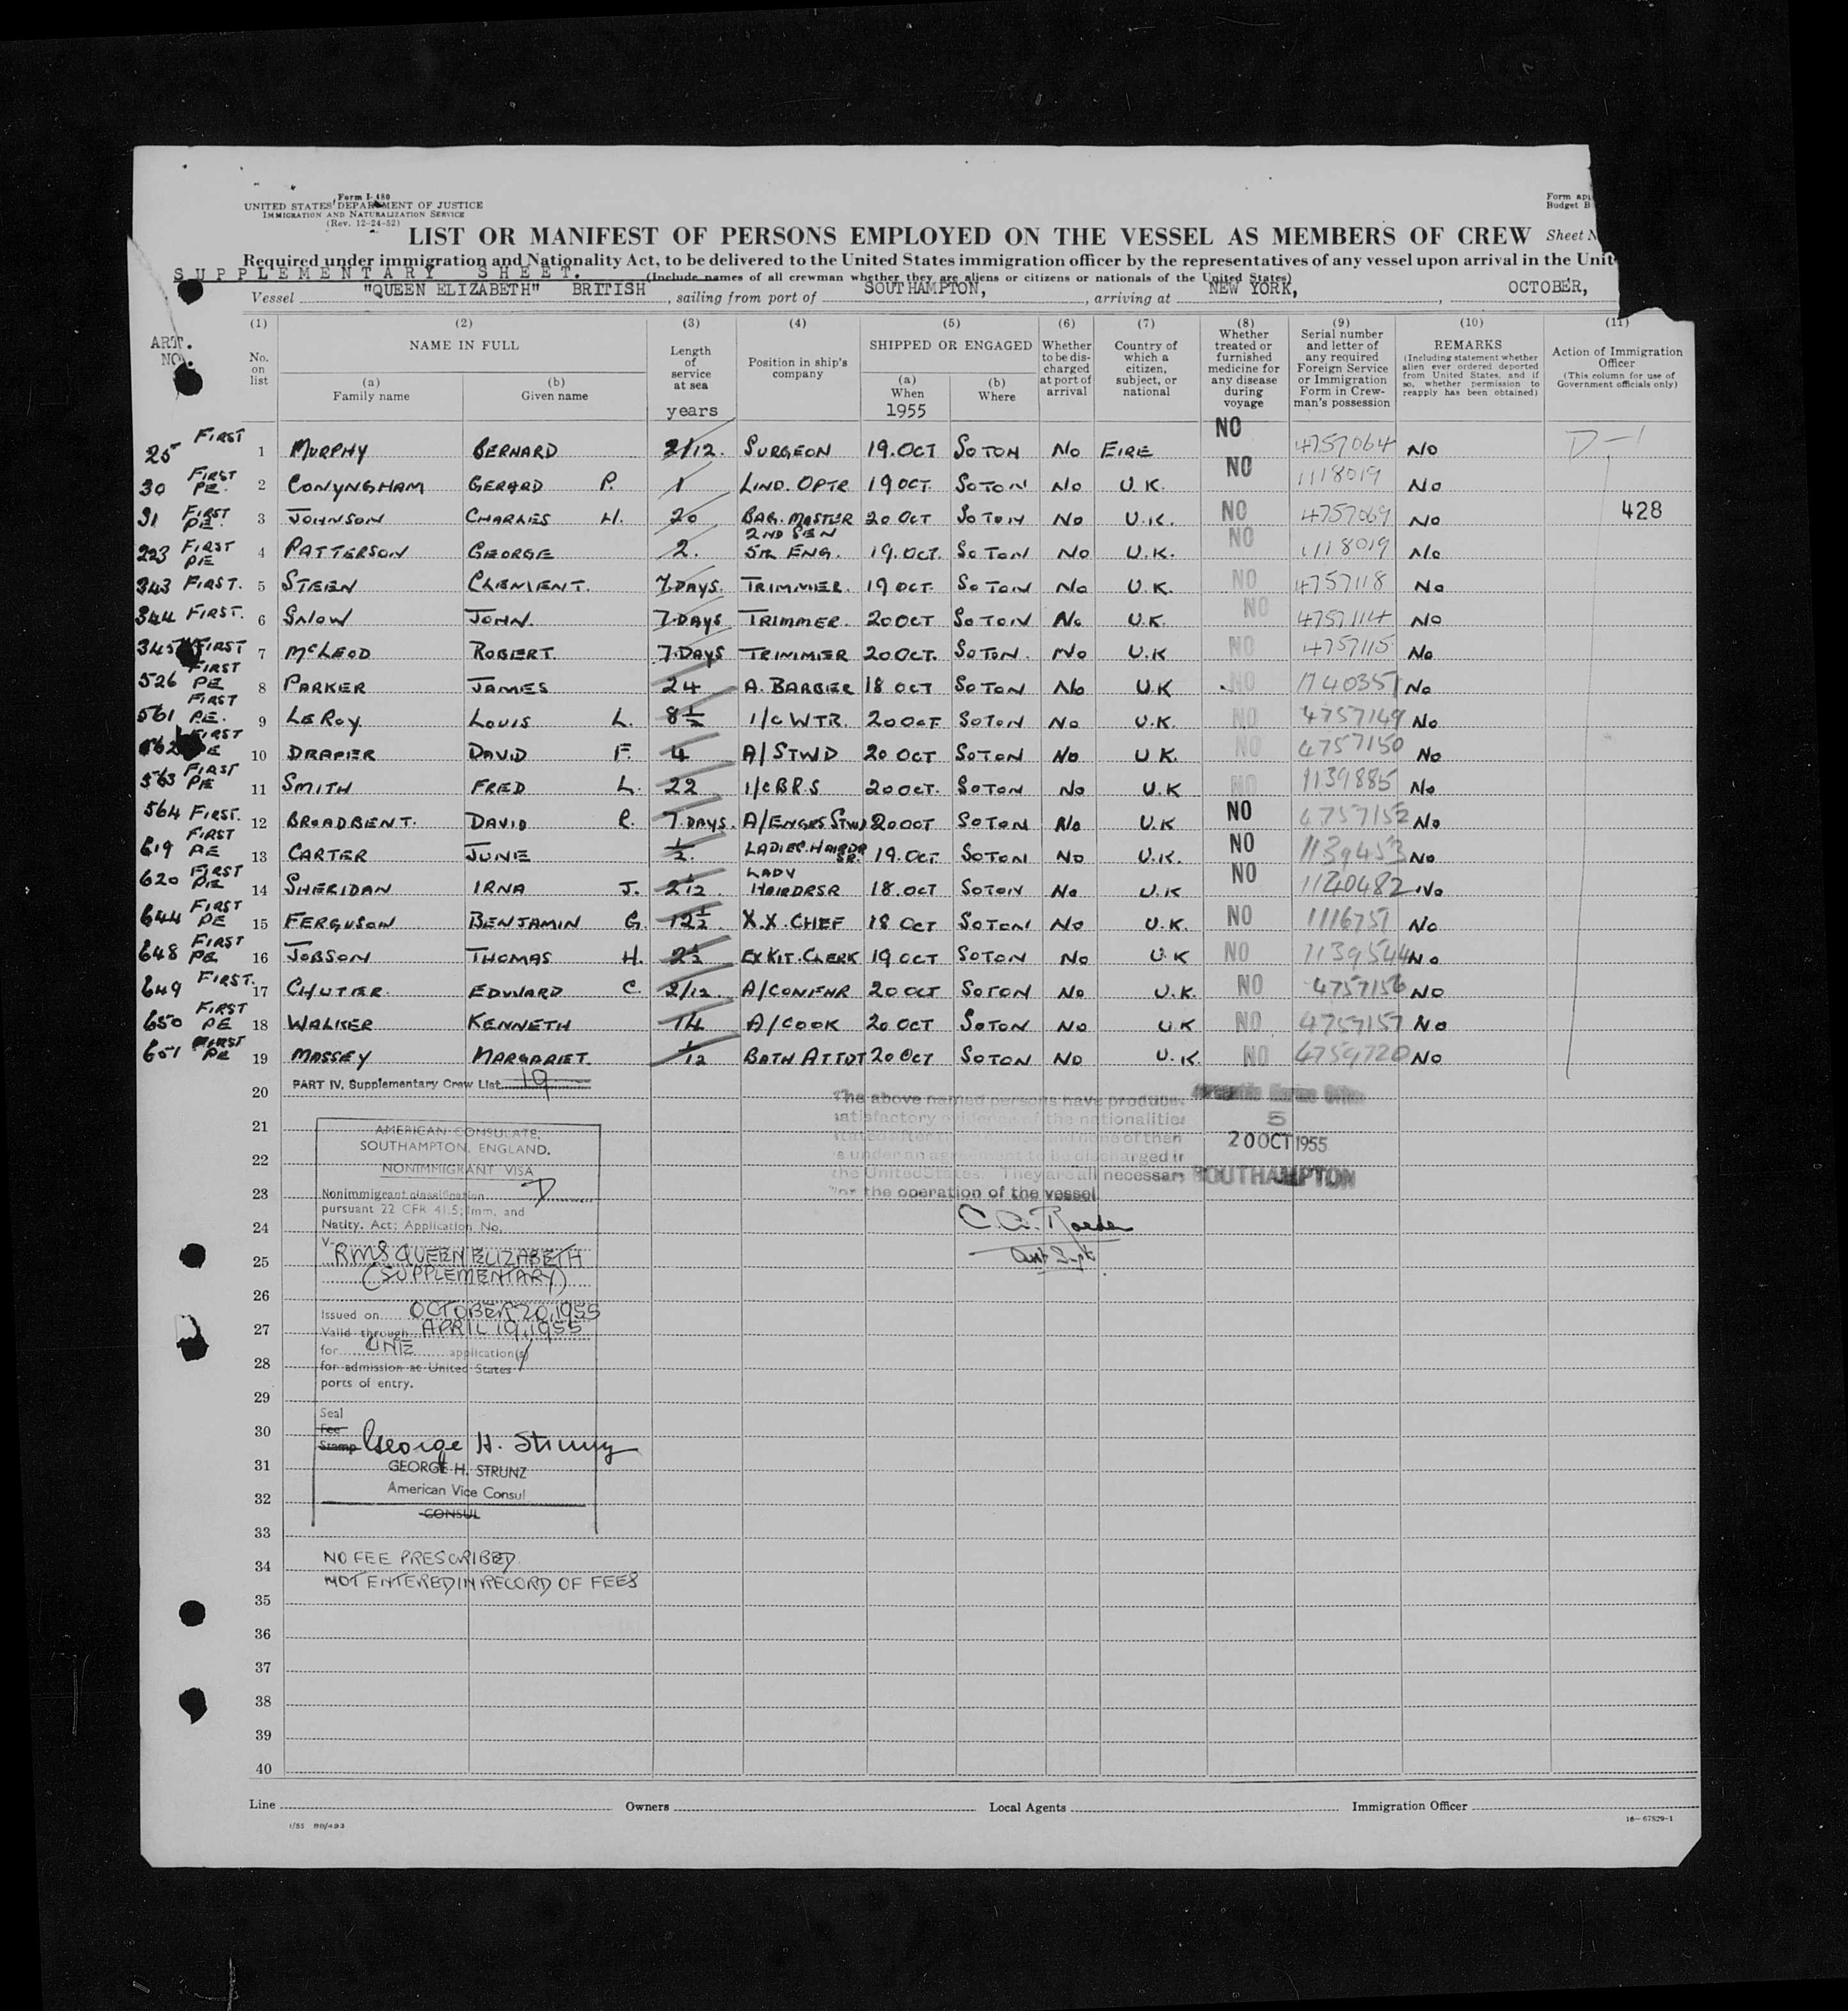 Form I-480
UNITED STATES DEPARTMENT OF JUSTICE
IMMIGRATION AND NATURALIZATION SERVICE
(Rev. 12-24-52)
Form
Budget B
LIST OR MANIFEST OF PERSONS EMPLOYED ON THE VESSEL AS MEMBERS OF CREW Sheet N
Required under immigration and Nationality Act, to be delivered to the United States immigration officer by the representatives of any vessel upon arrival in the Unit
SUPPLEMENTARY SHEET.
(Include names of all crewman whether they are aliens or citizens or nationals of the United States)
Vessel "QUEEN ELIZABETH" BRITISH, sailing from port of SOUTHAMPTON, , arriving at NEW YORK, , OCTOBER,
ART. NO.
(1) No. on list
(2) NAME IN FULL
(a) Family name
(b) Given name
(3) Length of service at sea years
(4) Position in ship's company
(5) SHIPPED OR ENGAGED
(a) When 1955
(b) Where
(6) Whether to be discharged at port of arrival
(7) Country of which a citizen, subject, or national
(8) Whether treated or furnished medicine for any disease during voyage
(9) Serial number and letter of any required Foreign Service or Immigration Form in Crewman's possession
(10) REMARKS (Including statement whether alien ever ordered deported from United States, and if so, whether permission to reapply has been obtained)
(11) Action of Immigration Officer (This column for use of Government officials only)
25 FIRST 1 MURPHY BERNARD 2/12. SURGEON 19.OCT SOTON NO EIRE NO 4757064 NO D-1
30 FIRST PE. 2 CONYNGHAM GERARD P. 1 LIND. OPTR 19 OCT. SOTON NO U.K. NO 1118019 NO
31 FIRST PE. 3 JOHNSON CHARLES H. 20 BAG. MASTER 20 OCT SOTON NO U.K. NO 4757069 NO 428
223 FIRST PE 4 PATTERSON GEORGE 2. 2ND SEN 5TH ENG. 19.OCT. SOTON NO U.K. NO 1118019 NO
343 FIRST. 5 STEEN CLEMENT. 7.DAYS. TRIMMER. 19 OCT. SOTON NO U.K. NO 4757118 NO
344 FIRST. 6 SNOW JOHN. 7.DAYS TRIMMER. 20 OCT SOTON NO U.K. NO 4757114 NO
345 FIRST 7 McLEOD ROBERT. 7.DAYS TRIMMER 20 OCT. SOTON. NO U.K NO 4757115 NO
526 FIRST PE 8 PARKER JAMES 24 A. BARBER 18 OCT SOTON NO U.K NO 1740351 NO
561 FIRST P.E. 9 LEROY. LOUIS L. 8½ 1/C WTR. 20 OCT SOTON NO U.K. NO 4757149 NO
562 FIRST PE 10 DRAPER DAVID F. 4 A/STWD 20 OCT SOTON NO U.K. NO 4757150 NO
563 FIRST PE 11 SMITH FRED L. 22 1/C B.R.S 20 OCT. SOTON NO U.K NO 1139885 NO
564 FIRST. 12 BROADBENT. DAVID R. 7.DAYS. A/ENGRS STWD 20 OCT SOTON NO U.K NO 4757152 NO
619 FIRST PE 13 CARTER JUNE ½. LADIES. HAIRDR SR. 19.OCT. SOTON NO U.K. NO 1139453 NO
620 FIRST PE 14 SHERIDAN IRNA J. 2/12 LADY HAIRDRSR 18.OCT SOTON NO U.K NO 1140482 NO
644 FIRST PE 15 FERGUSON BENJAMIN G. 12½. X.X. CHEF 18 OCT SOTON NO U.K. NO 1116751 NO
648 FIRST PE 16 JOBSON THOMAS H. 2½ EX KIT. CLERK 19 OCT SOTON NO U.K NO 1139544 NO
649 FIRST. 17 CHUTER. EDWARD C. 2/12. A/CONFNR 20 OCT SOTON NO U.K. NO 4757156 NO
650 FIRST PE 18 WALKER KENNETH 14 A/COOK 20 OCT SOTON NO U.K NO 4757157 NO
651 FIRST PE 19 MASSEY MARGARET. 1/12 BATH ATTDT 20 OCT SOTON NO U.K. NO 4759720 NO
20 PART IV. Supplementary Crew List 19
The above named persons have produced
satisfactory evidence of the nationalities
stated after their names and none of them
is under an agreement to be discharged in
the United States. They are all necessary
for the operation of the vessel
5
20 OCT 1955
SOUTHAMPTON
C. A. Roeder
Asst Supt.
21
22
23
24
25
26
27
28
29
30
31
32
33
34
35
36
37
38
39
40
AMERICAN CONSULATE,
SOUTHAMPTON, ENGLAND.
NONIMMIGRANT VISA
Nonimmigrant classification D
pursuant 22 CFR 41.5; Imm. and
Natity. Act; Application No.
V-
RMS QUEEN ELIZABETH
(SUPPLEMENTARY)
Issued on OCTOBER 20, 1955
Valid through APRIL 19, 1955
for ONE application(s)
for admission at United States
ports of entry.
Seal
Fee
Stamp George H. Strunz
GEORGE H. STRUNZ
American Vice Consul
CONSUL
NO FEE PRESCRIBED.
NOT ENTERED IN RECORD OF FEES
Line Owners Local Agents Immigration Officer
1/55 BB/493
16—67829-1